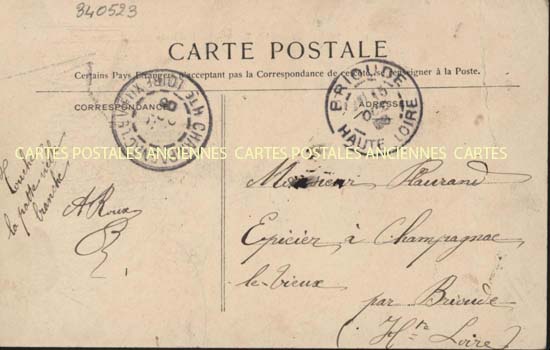 340523
CARTE POSTALE
Certains Pays Etrangers n'acceptant pas la Correspondance de ce côté, se renseigner à la Poste.
CORRESPONDANCE
ADRESSE
BRIOUDE
HAUTE-LOIRE
HTE LOIRE
CARTES POSTALES ANCIENNES CARTES POSTALES ANCIENNES CARTES POSTALES ANCIENNES
la patte
blanche
A Roux
Monsieur Flaurand
Epicier à Champagnac
le-Vieux
par Brioude
(Hte Loire)